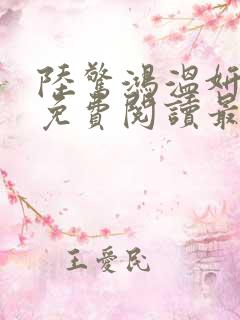 陸驚鴻溫妍
免費閱讀最
王愛民